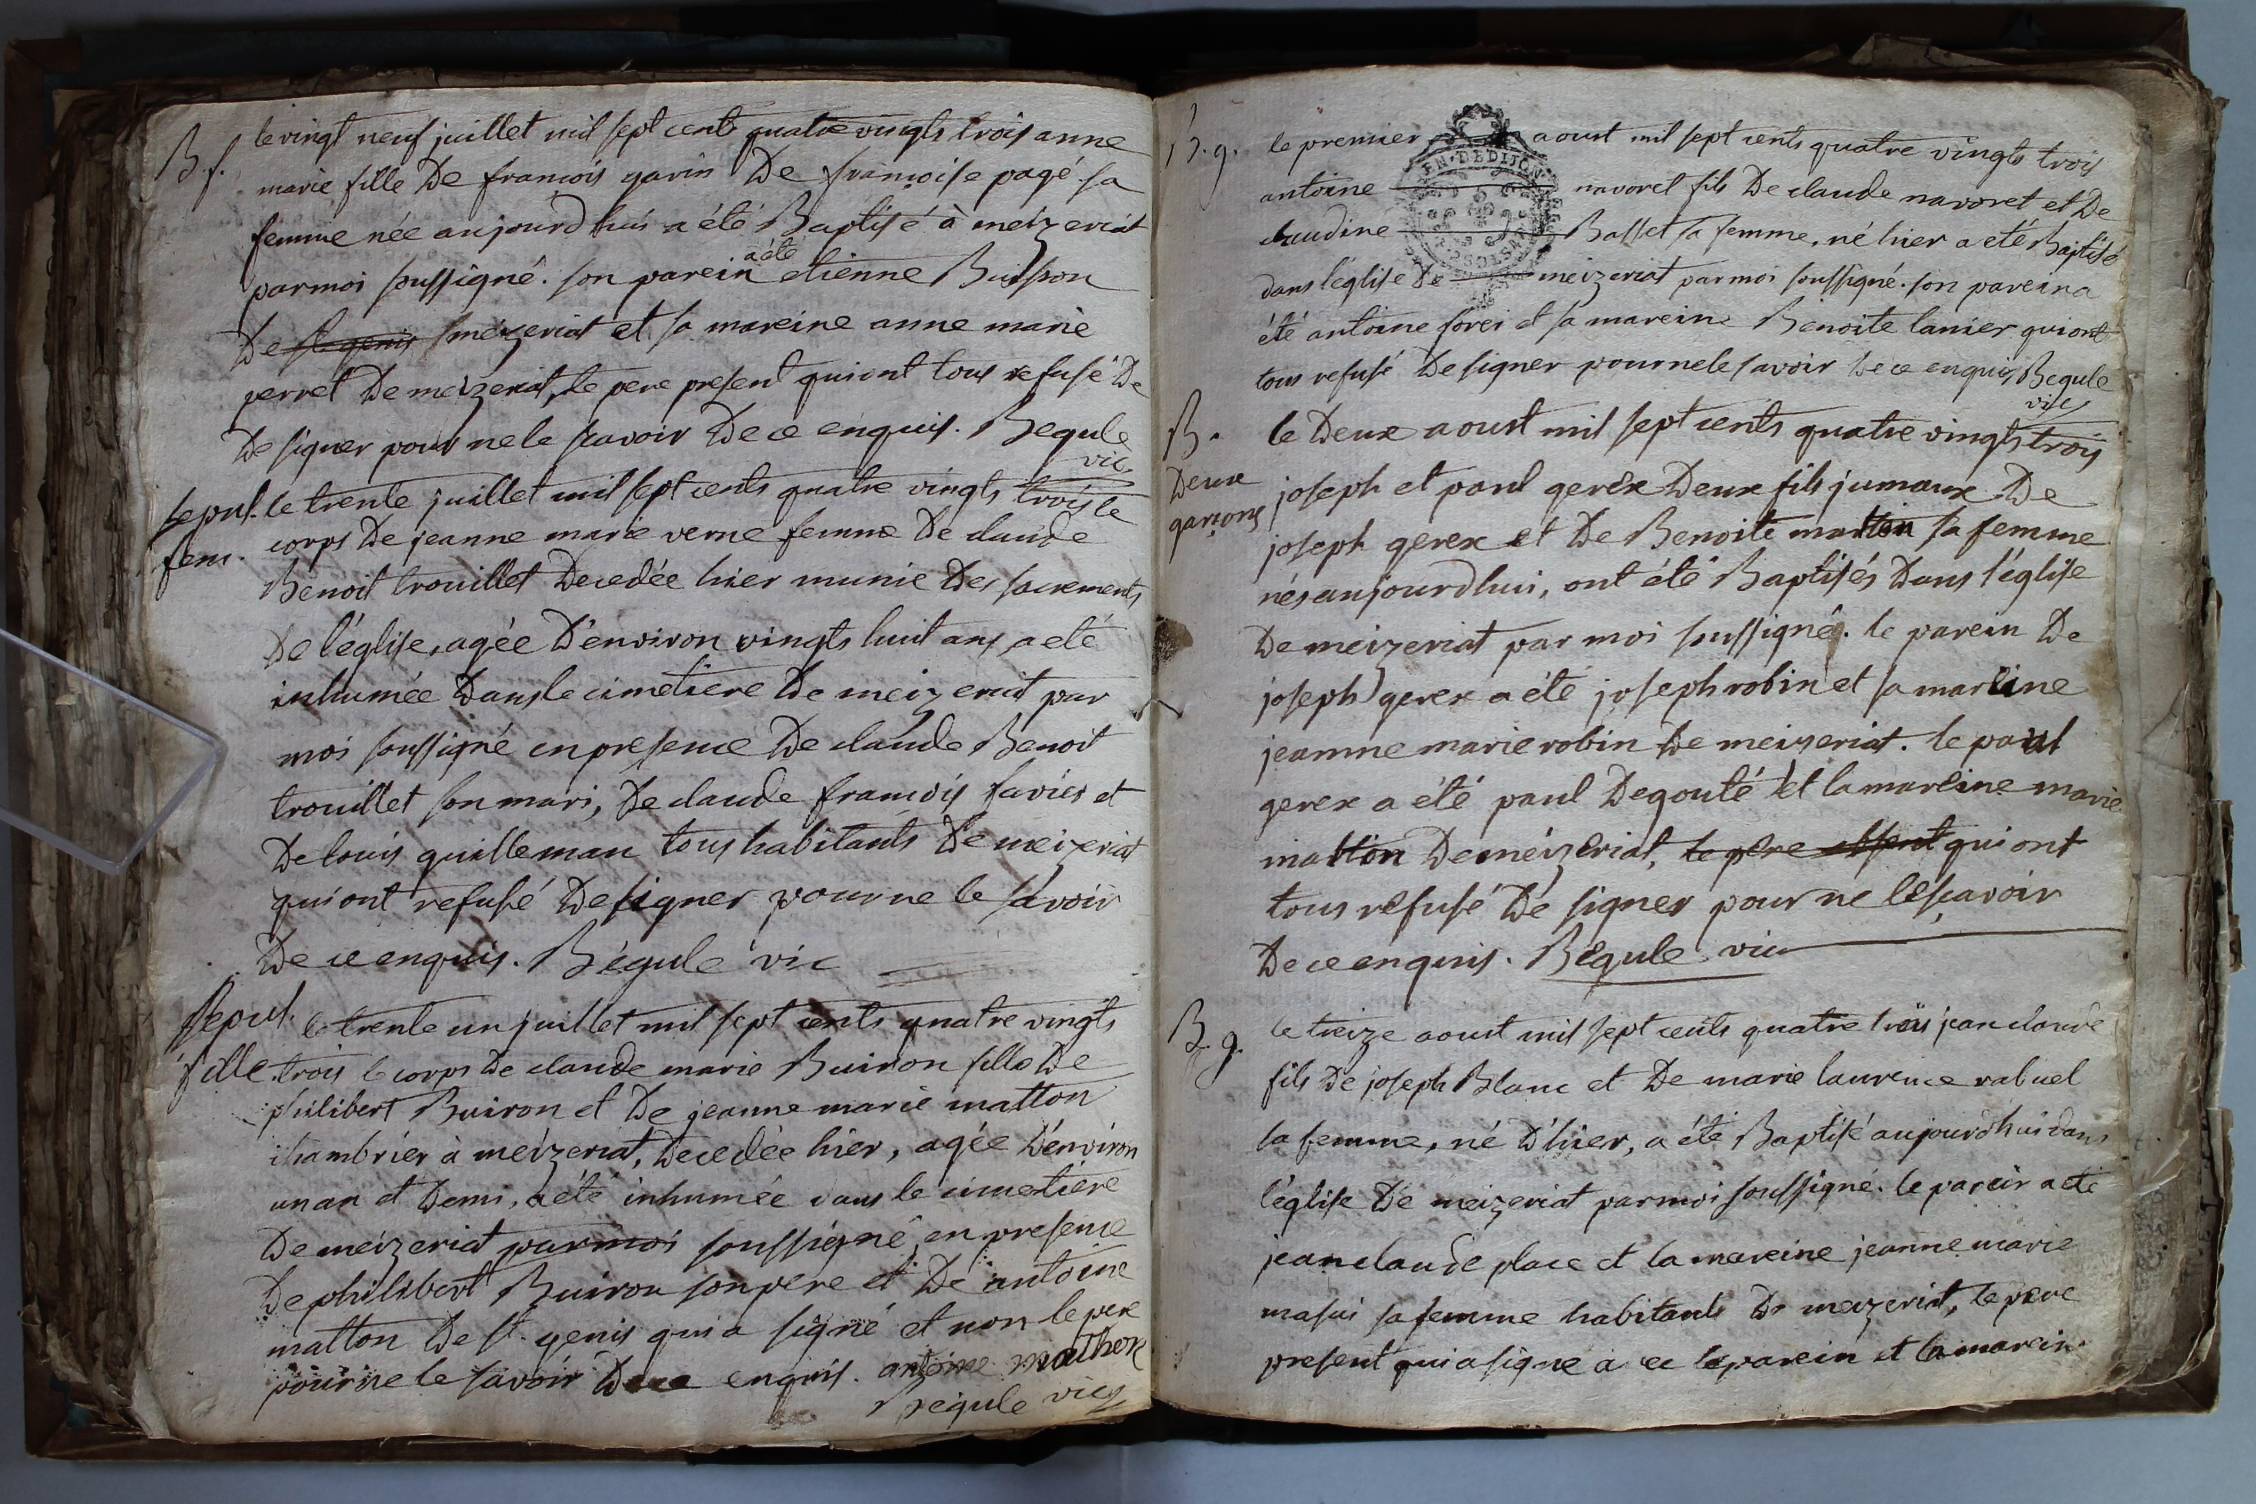 B. f.
le vingt neuf juillet mil sept cents quatre vingts trois anne
marie fille De francois garin De francoise pagé sa
femme née aujourdhui a été Baptisé à meizeriat
par moi soussigné. son parein a été etienne Buisson
De st genis meizeriat et sa mareine anne marie
perret De meizeriat, le pere present qui ont tous refusé De
De signer pour ne le scavoir De ce enquis. Begule
vic
sepul. fem.
le trente juillet mil sept cents quatre vingts trois le
corps De jeanne marie verne femme De claude
Benoit trouillet Decedée hier munie Des sacrements
De l'église, agée D'environ vingts huit ans a eté
inhumée Dans le cimetiere De meizeriat par
moi soussigné en presence De claude Benoit
trouillet son mari, De claude francois favier et
De louis guilleman tous habitants De meizeriat
qui ont refusé De signer pour ne le savoir
De ce enquis. Bégule vic
sepul. fille
le trente un juillet mil sept cents quatre vingts
trois le corps De claude marie Buiron fille De
philibert Buiron et De jeanne marie matton
chambrier à meizeriat, Decedée hier, agée D'environ
un an et Demi, a été inhumée dans le cimetiere
De meizeriat par moi soussigné, en presence
De philibert Buiron son pere et De antoine
matton De st. genis qui a signé et non le pere
pour ne le savoir De ce enquis. antoine mathon
Begule vic
B. g.
le premier aoust mil sept cents quatre vingts trois
antoine navoret fils De claude navoret et De
claudine Basset sa femme, né hier a eté Baptisé
dans l'église De meizeriat par moi soussigné. son parein a
été antoine forei et sa mareine Benoite lanier qui ont
tous refusé De signer pour ne le savoir De ce enquis Begule
vic
B.
Deux
garçons
le Deux aoust mil sept cents quatre vingts trois
joseph et paul gerex Deux fils jumaux De
joseph gerex et De Benoite matton sa femme
nés aujourdhui, ont été Baptisés Dans l'église
De meizeriat par moi soussigné. le parein De
joseph gerex a été joseph robin et sa mareine
jeamne marie robin De meizeriat. le paul
gerex a été paul Degouté et la mareine marie
matton De meizeriat, le pere absent qui ont
tous refusé De signer pour ne le scavoir
De ce enquis. Bégule vic
B. g.
le treize aoust mil sept cents quatre trois jean claude
fils De joseph Blanc et De marie laurence rabuel
sa femme, né D'hier, a été Baptisé aujourdhui dans
l'église De meizeriat par moi soussigné. le parein a été
jean claude place et la mareine jeanne marie
masui sa femme habitants De meizeriat, le pere
present qui a signé a ec le parein et la marein